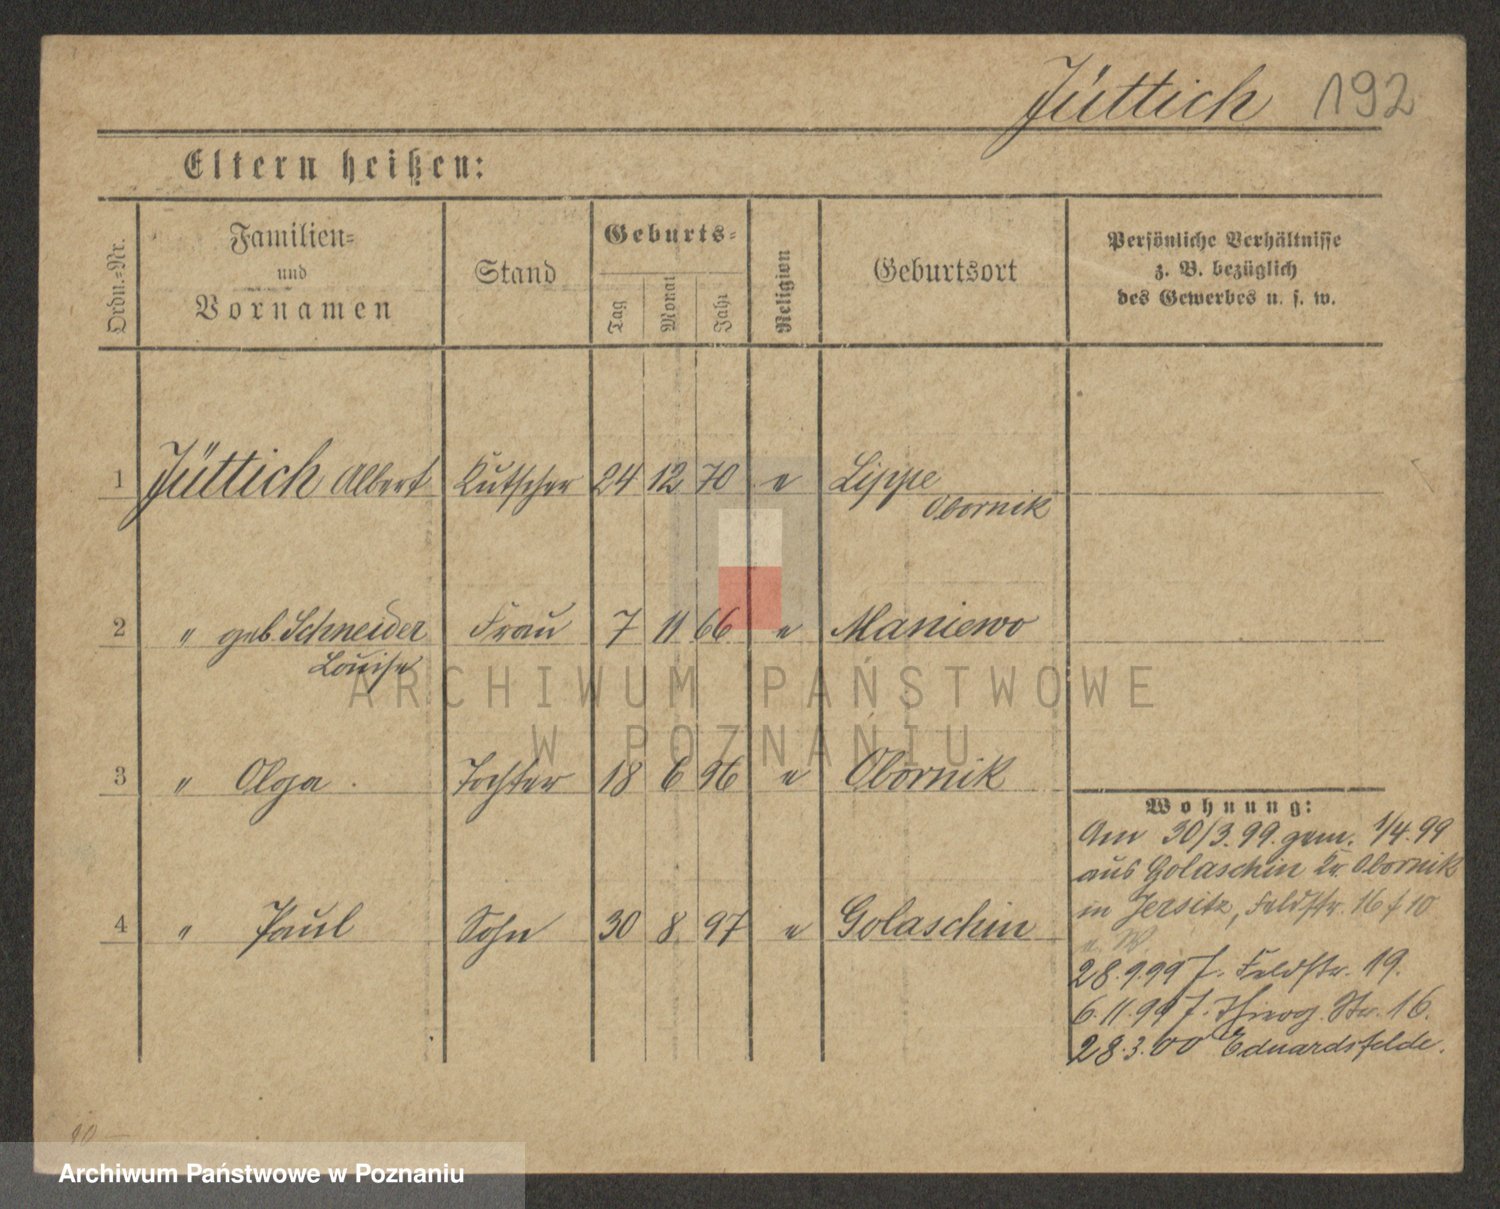 Jüttich 192
Eltern heißen:
Ordn.-Nr.
Familien-
und
Vornamen
Stand
Geburts-
Tag
Monat
Jahr
Religion
Geburtsort
Persönliche Verhältnisse
z. B. bezüglich
des Gewerbes u. s. w.
1 Jüttich Albert Kutscher 24 12 70 e Lippe
Obornik
2 " geb. Schneider Frau 7 11 66 e Maniewo
Louise
3 " Olga . Tochter 18 6 96 e Obornik
4 " Paul Sohn 30 8 97 e Golaschin
Wohnung:
Am 30/3.99. gem. 1/4.99
aus Golaschin Kr. Obornik
in Jersitz, Feldstr. 16 f 10
28.9.99 J. Feldstr. 19.
6.11.99 J. Str. 16.
28.3.00 Eduardsfelde.
ARCHIWUM PAŃSTWOWE
W POZNANIU
Archiwum Państwowe w Poznaniu